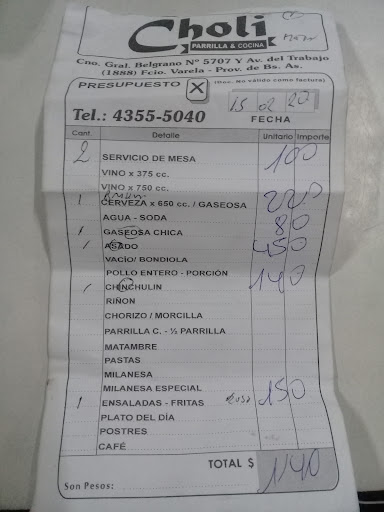 Choli
PARRILLA & COCINA
Cno. Gral. Belgrano Nº 5707 Y Av. del Trabajo
(1888) Fcio. Varela - Prov. de Bs. As.
PRESUPUESTO X (Doc. No válido como factura)
15 02 20
Tel.: 4355-5040 FECHA
Cant. Detalle Unitario Importe
2 SERVICIO DE MESA 100
VINO x 375 cc.
VINO x 750 cc.
1 CERVEZA x 650 cc. / GASEOSA 220
AGUA - SODA
1 GASEOSA CHICA 80
1 ASADO 450
VACIO/ BONDIOLA
POLLO ENTERO - PORCIÓN
1 CHINCHULIN 140
RIÑON
CHORIZO / MORCILLA
PARRILLA C. - ½ PARRILLA
MATAMBRE
PASTAS
MILANESA
MILANESA ESPECIAL
1 ENSALADAS - FRITAS 150
PLATO DEL DÍA
POSTRES
CAFÉ
TOTAL $ 1140
Son Pesos: